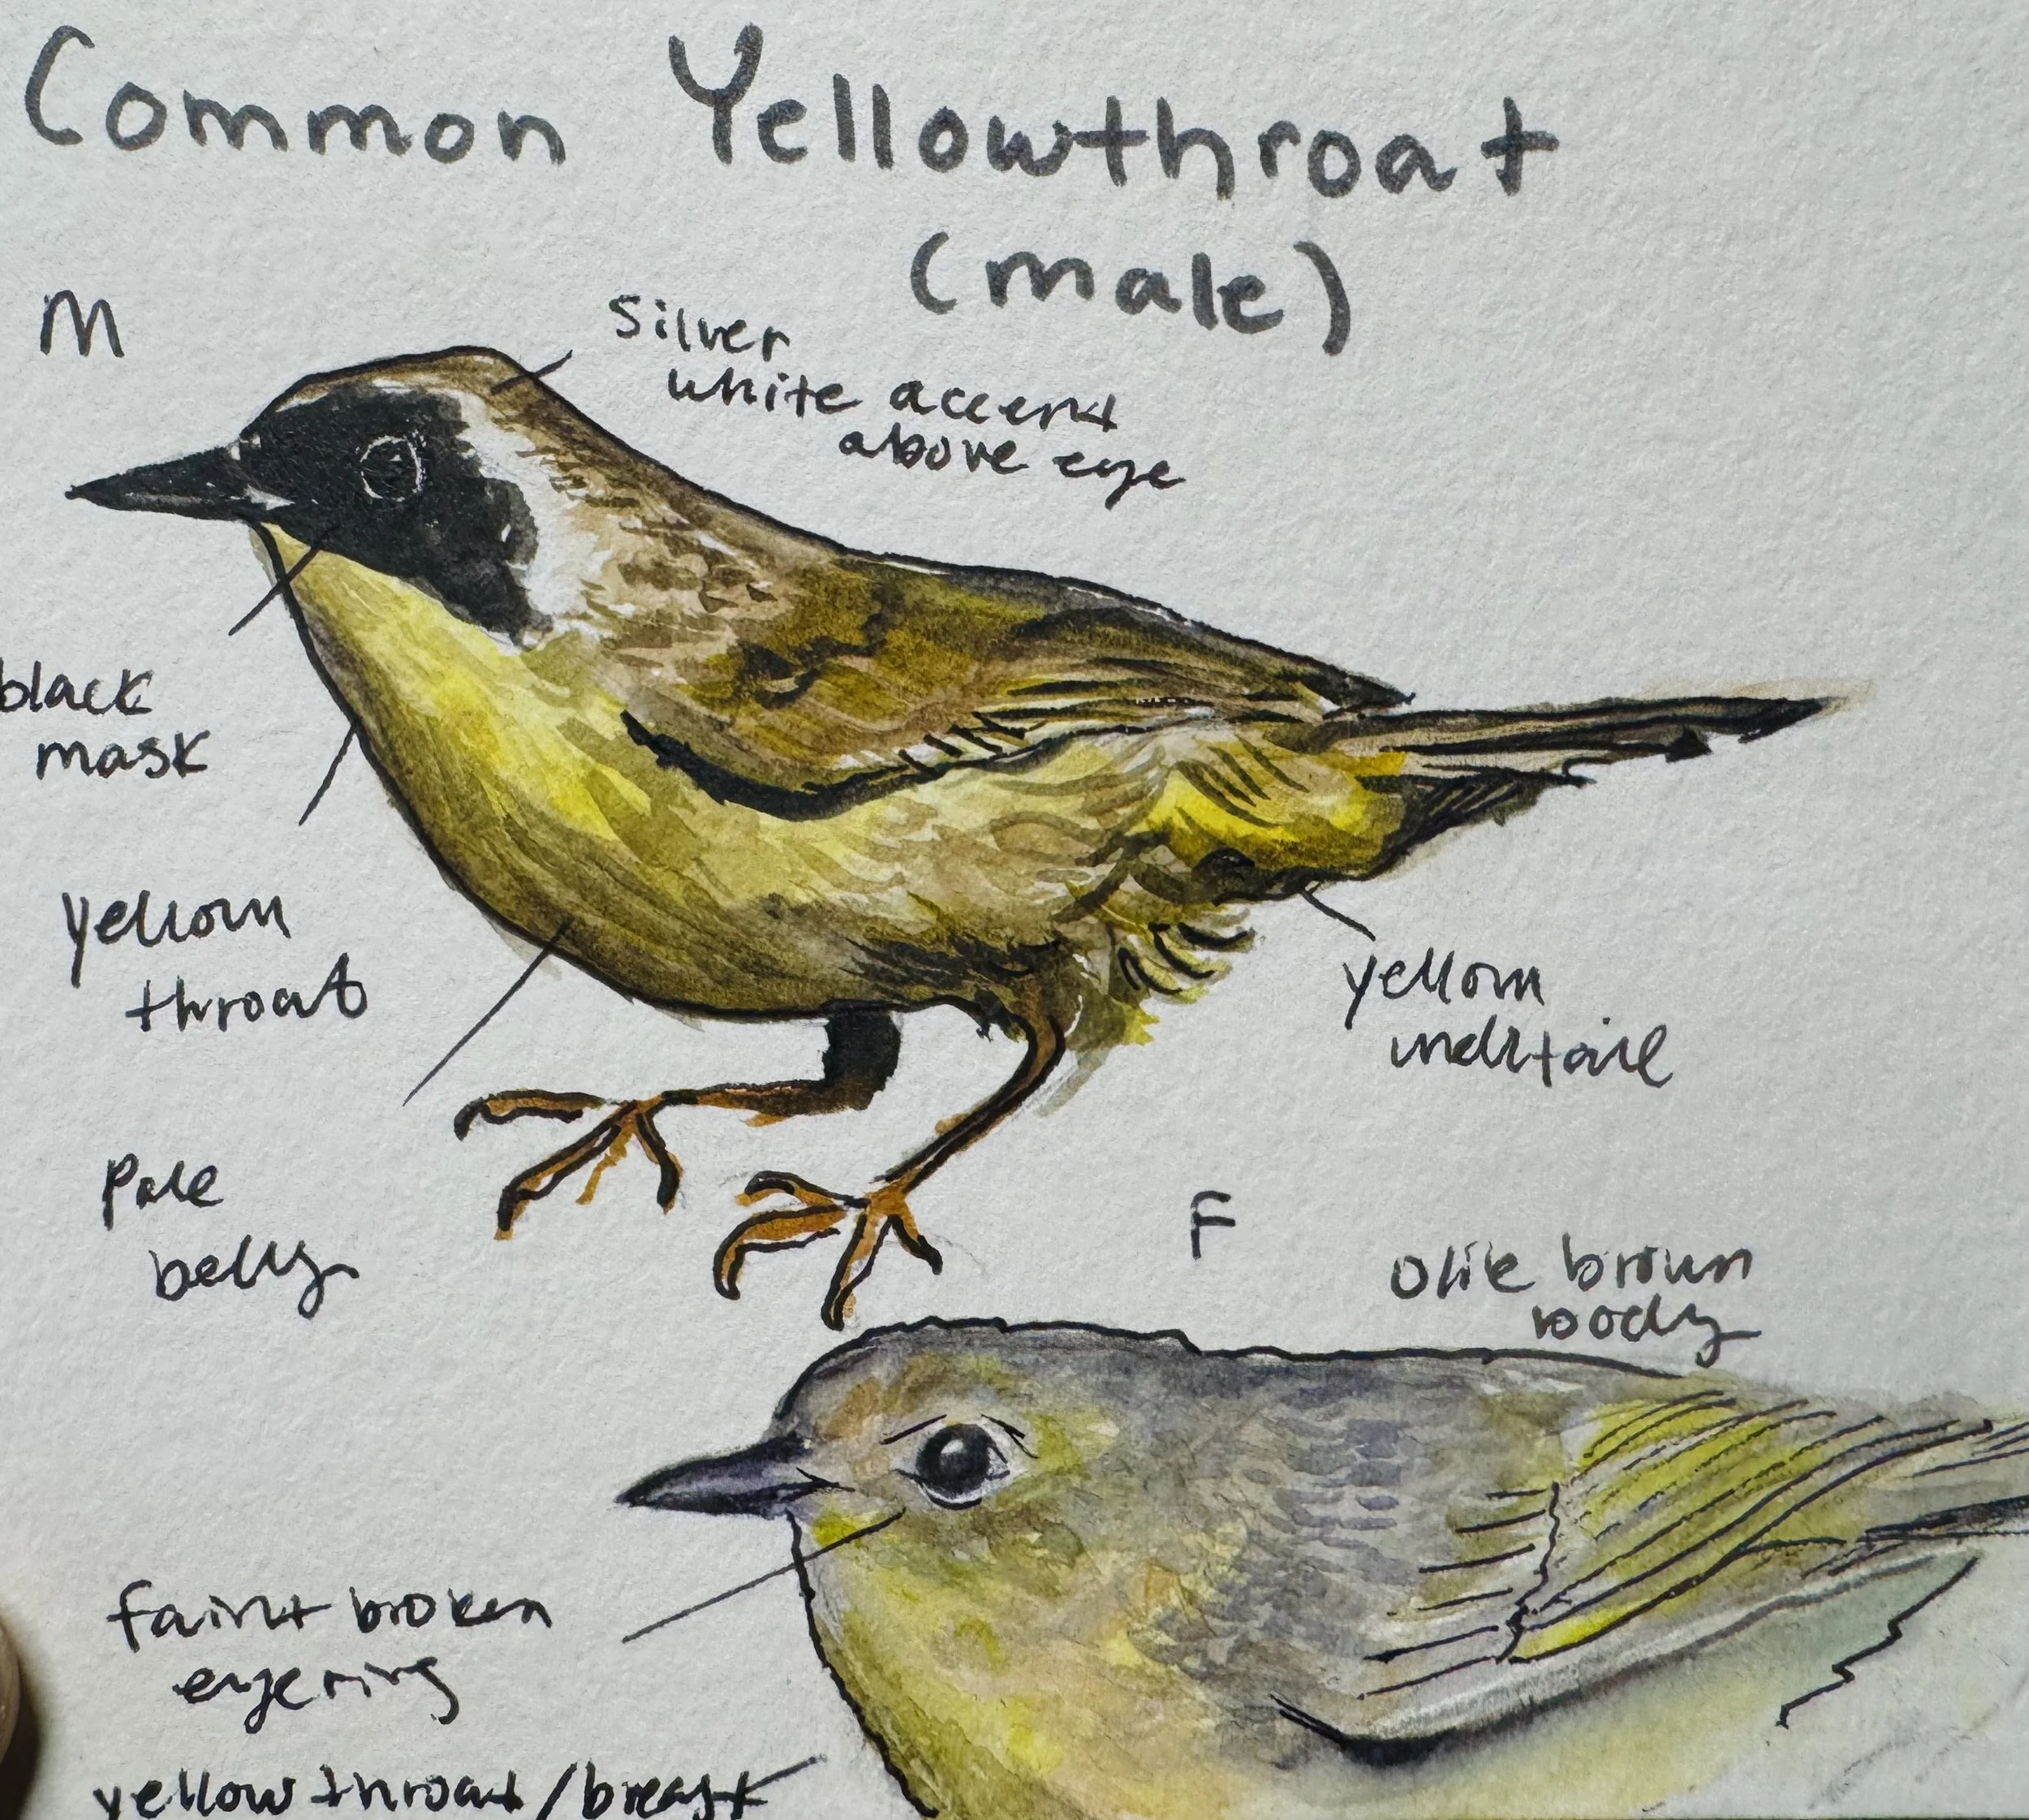 Common Yellowthroat
(male)
M
Silver
white accent
above eye
black
mask
yellow
throat
yellow
undertail
Pale
belly
F
Olive brown
body
faint broken
eyering
yellow throat/breast